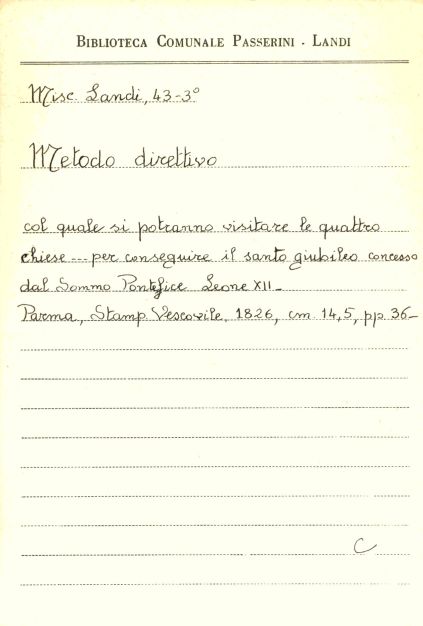 BIBLIOTECA COMUNALE PASSERINI - LANDI
Misc. Landi, 43-3°
Metodo direttivo
col quale si potranno visitare le quattro
chiese --- per conseguire il santo giubileo concesso
dal Sommo Pontefice Leone XII_
Parma, Stamp. Vescovile, 1826, cm. 14,5, pp. 36_
C